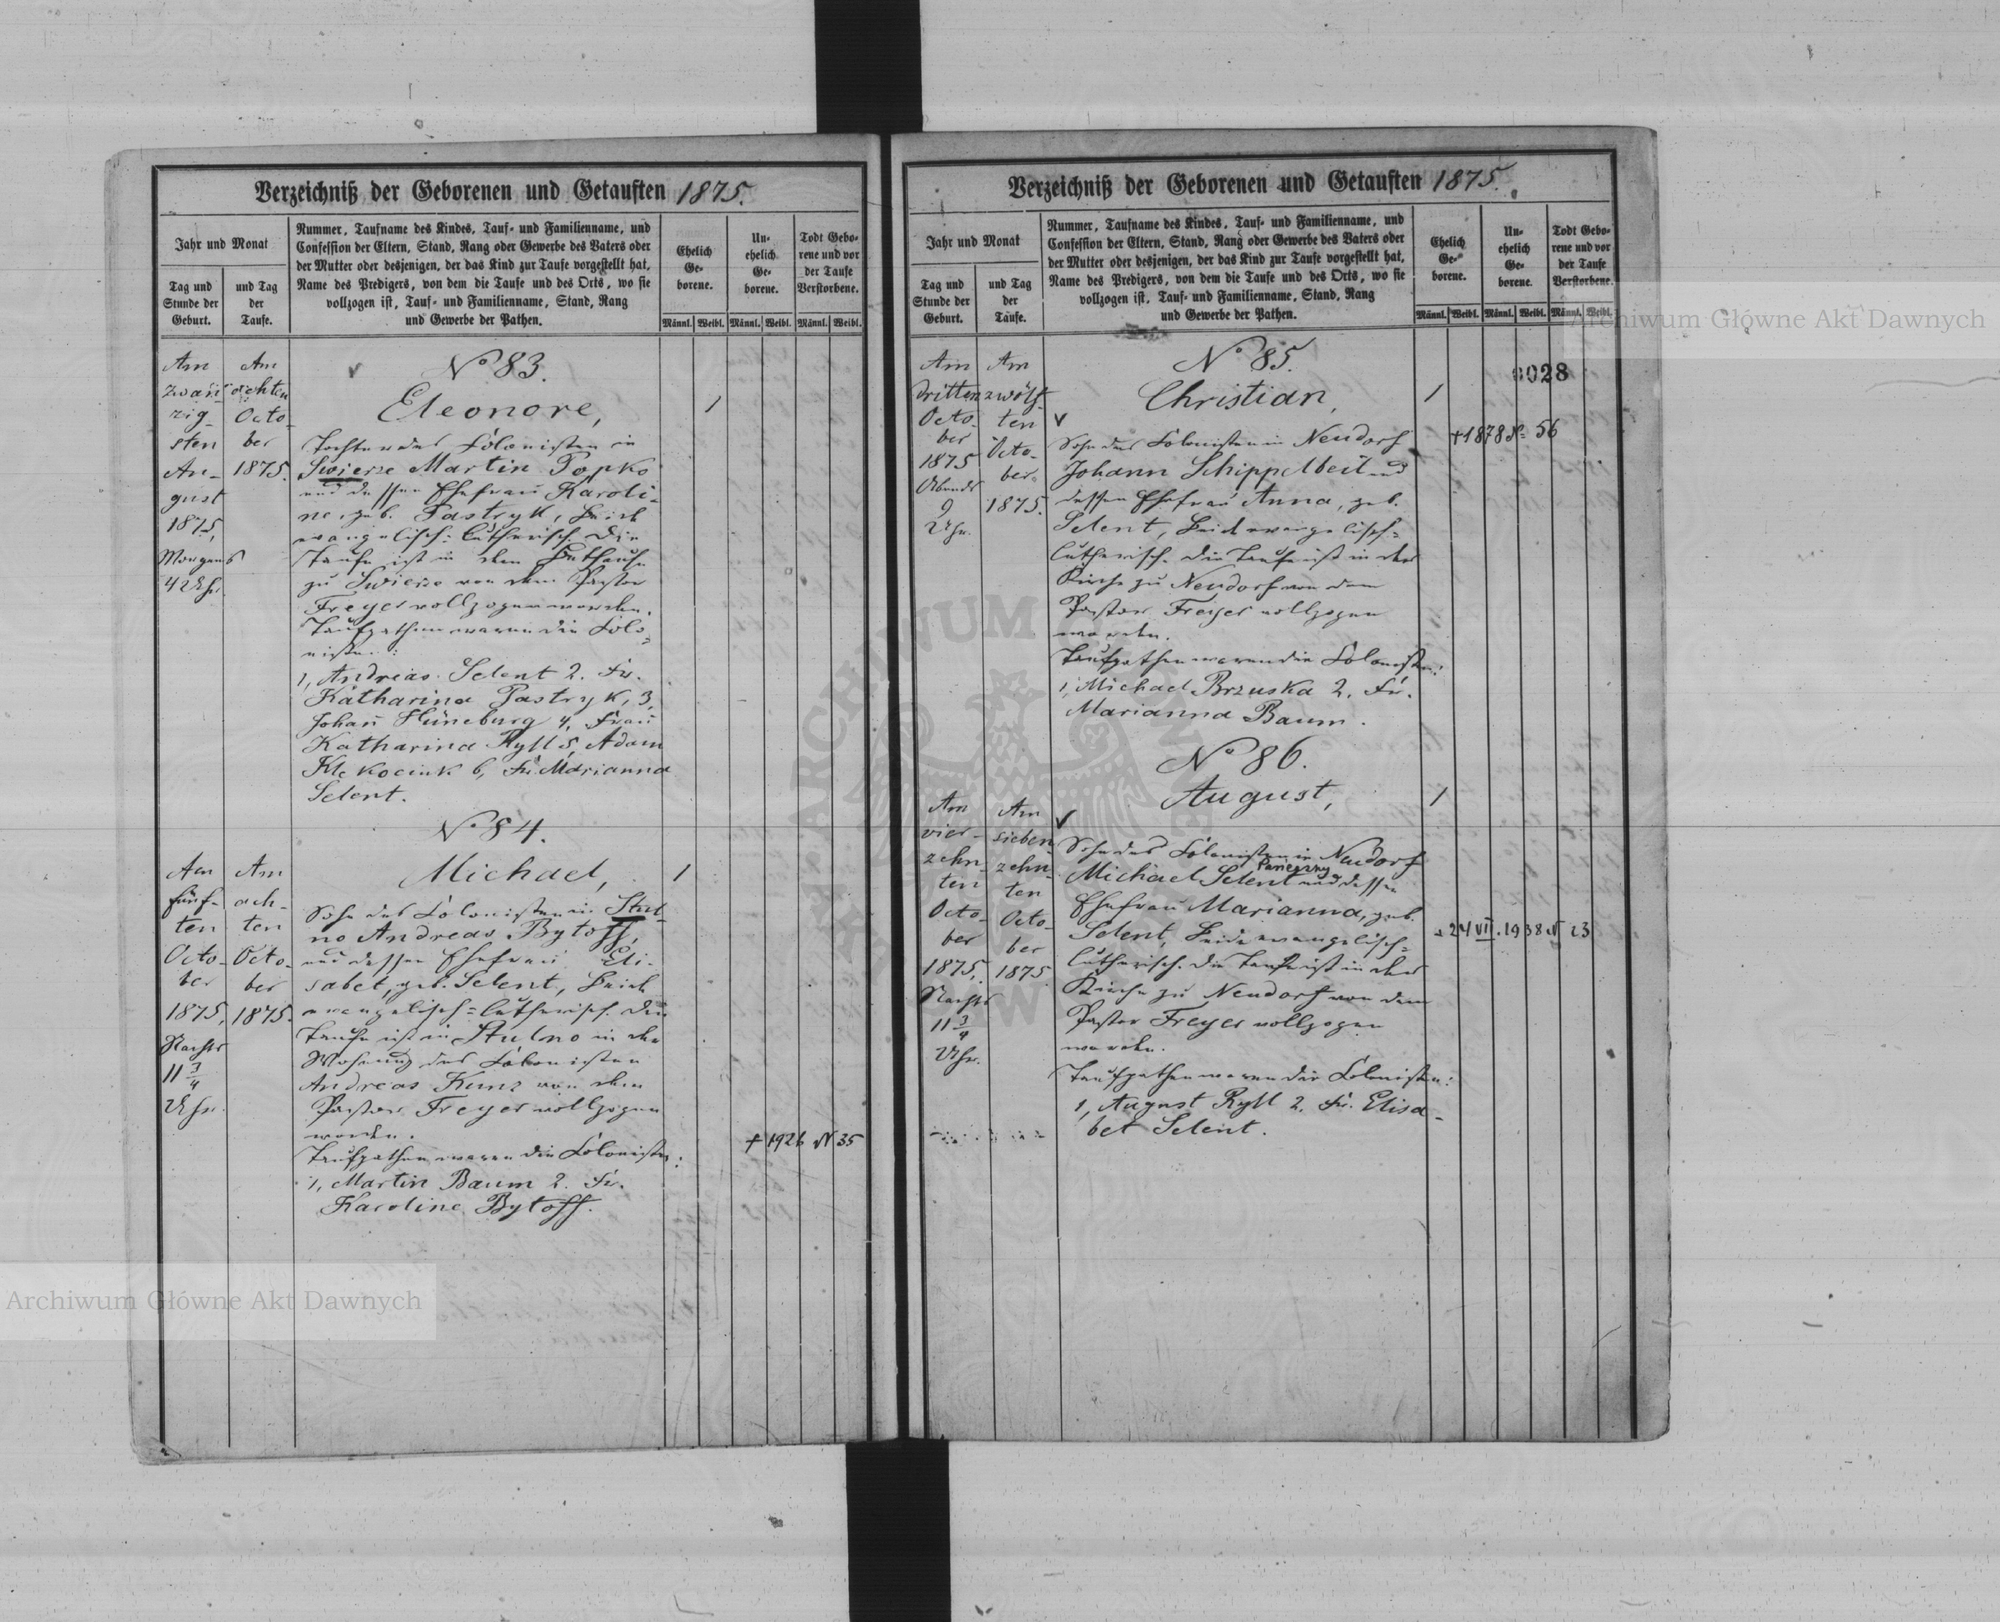 Verzeichniß der Geborenen und Getauften 1875.
Jahr und Monat
Tag und Stunde der Geburt.
und Tag der Taufe.
Nummer, Taufname des Kindes, Tauf- und Familienname, und
Confession der Eltern, Stand, Rang oder Gewerbe des Vaters oder
der Mutter oder desjenigen, der das Kind zur Taufe vorgestellt hat,
Name des Predigers, von dem die Taufe und des Orts, wo sie
vollzogen ist, Tauf- und Familienname, Stand, Rang
und Gewerbe der Pathen.
Ehelich Ge-borene.
Un-ehelich Ge-borene.
Todt Gebo-rene und vor der Taufe Verstorbene.
Männl. Weibl. Männl. Weibl. Männl. Weibl.
Am
zwan-
zig-
sten
Au-
gust
1875,
Morgens
4 Uhr
Am
achten
Octo-
ber
1875.
No 83.
Eleonore,
Tochter des Colonisten in
Swierze Martin Popko
und dessen Ehefrau Karoli-
ne, geb. Pastryk, beide
evangelisch-lutherisch. Die
Taufe ist in dem Bethause
zu Swierze von dem Pastor
Freyer vollzogen worden.
Taufpathen waren die Colo-
nisten:
1, Andreas Selent 2. Fr.
Katharina Pastryk, 3,
Johan Hüneburg 4, Frau
Katharina Ryll 5, Adam
Klekociuk 6, Fr. Marianna
Selent.
1
Am
fünf-
ten
Octo-
ber
1875,
Nachts
11 3/4
Uhr.
Am
ach-
ten
Octo-
ber
1875.
No 84.
Michael,
Sohn des Colonisten in Stul-
no Andreas Bytoff,
und dessen Ehefrau Eli-
sabet, geb. Selent, beide
evangelisch-lutherisch. Die
Taufe ist in Stulno in der
Wohnung des Colonisten
Andreas Kunz von dem
Pastor Freyer vollzogen
worden.
Taufpathen waren die Colonisten:
1, Martin Baum 2. Fr.
Karoline Bytoff.
1
+ 1926 N 35
Verzeichniß der Geborenen und Getauften 1875.
Jahr und Monat
Tag und Stunde der Geburt.
und Tag der Taufe.
Nummer, Taufname des Kindes, Tauf- und Familienname, und
Confession der Eltern, Stand, Rang oder Gewerbe des Vaters oder
der Mutter oder desjenigen, der das Kind zur Taufe vorgestellt hat,
Name des Predigers, von dem die Taufe und des Orts, wo sie
vollzogen ist, Tauf- und Familienname, Stand, Rang
und Gewerbe der Pathen.
Ehelich Ge-borene.
Un-ehelich Ge-borene.
Todt Gebo-rene und vor der Taufe Verstorbene.
Männl. Weibl. Männl. Weibl. Männl. Weibl.
Am
dritten
Octo-
ber
1875
Abends
9
Uhr.
Am
zwölf-
ten
Octo-
ber
1875.
No 85.
Christian,
Sohn des Colonisten in Neudorf
Johann Schippelbeit und
dessen Ehefrau Anna, geb.
Selent, beide evangelisch-
lutherisch. Die Taufe ist in der
Kirche zu Neudorf von dem
Pastor Freyer vollzogen
worden.
Taufpathen waren die Colonisten:
1, Michael Brzuska 2. Fr.
Marianna Baum.
1
0028
+ 1878 N 56
Am
vier-
zehn-
ten
Octo-
ber
1875,
Nachts
11 3/4
Uhr.
Am
sieben-
zehn-
ten
Octo-
ber
1875
No 86.
August,
Sohn des Colonisten in Neudorf
Michael Selent und dessen
Ehefrau Marianna, geb.
Selent, beide evangelisch-
lutherisch. Die Taufe ist in der
Kirche zu Neudorf von dem
Pastor Freyer vollzogen
worden.
Taufpathen waren die Colonisten:
1, August Ryll 2. Fr. Elisa-
bet Selent.
1
24 VII. 1938 N 23
Archiwum Główne Akt Dawnych
Archiwum Główne Akt Dawnych